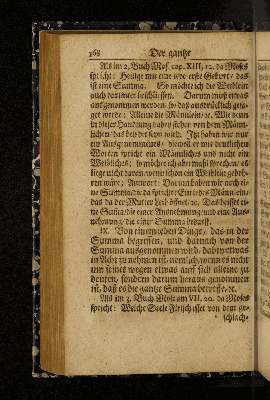 168 Der gantze
Als im 2. Buch Mos. cap. XIII, 12. da Moses
spricht: Heilige mir eine jede erste Geburt, das
ist eine Summa. So möchte ich das Weiblein
auch darunter beschliessen. Darum muß etwas
ausgenommen werden, so daß ausdrücklich gesa-
get worde: Allemal die Männlein etc. Wie denn
in dieser Handlung davon stehet von dem Männ-
lichen, das bey der seyn wird. Itzt haben wir nur
ein Ausgenommenes, dieweil er mit deutlichen
Worten spricht ein Männliches und nicht ein
Weibliches; so möchte ich abermahl sprechen: es
lieget nicht daran, wenn schon ein Weiblein geboh-
ren wäre; Antwort: Darum haben wir noch ei-
ne Summa, da er spricht: Ein jedes Männliche,
das da der Mutter Leib öffnet etc. Das heisset ei-
ne Sache, die einer Ausnehmung, und eine Aus-
nehmung, die einer Summa bedarff.
IX. Von einem jeden Dinge, das in der
Summa begriffen, und darnach von der
Summa ausgenommen wird, dabey etwas
in Acht zu nehmen ist, nemlich, wenn es nicht
um seinet wegen etwas auf sich alleine zu
deuten, sondern darum heraus genommen
ist, daß es die gantze Summa betreffe, etc.
Als im 3. Buch Mose am VII. 20. da Moses
spricht: Welche Seele Fleisch isset von dem ge-
schlach-